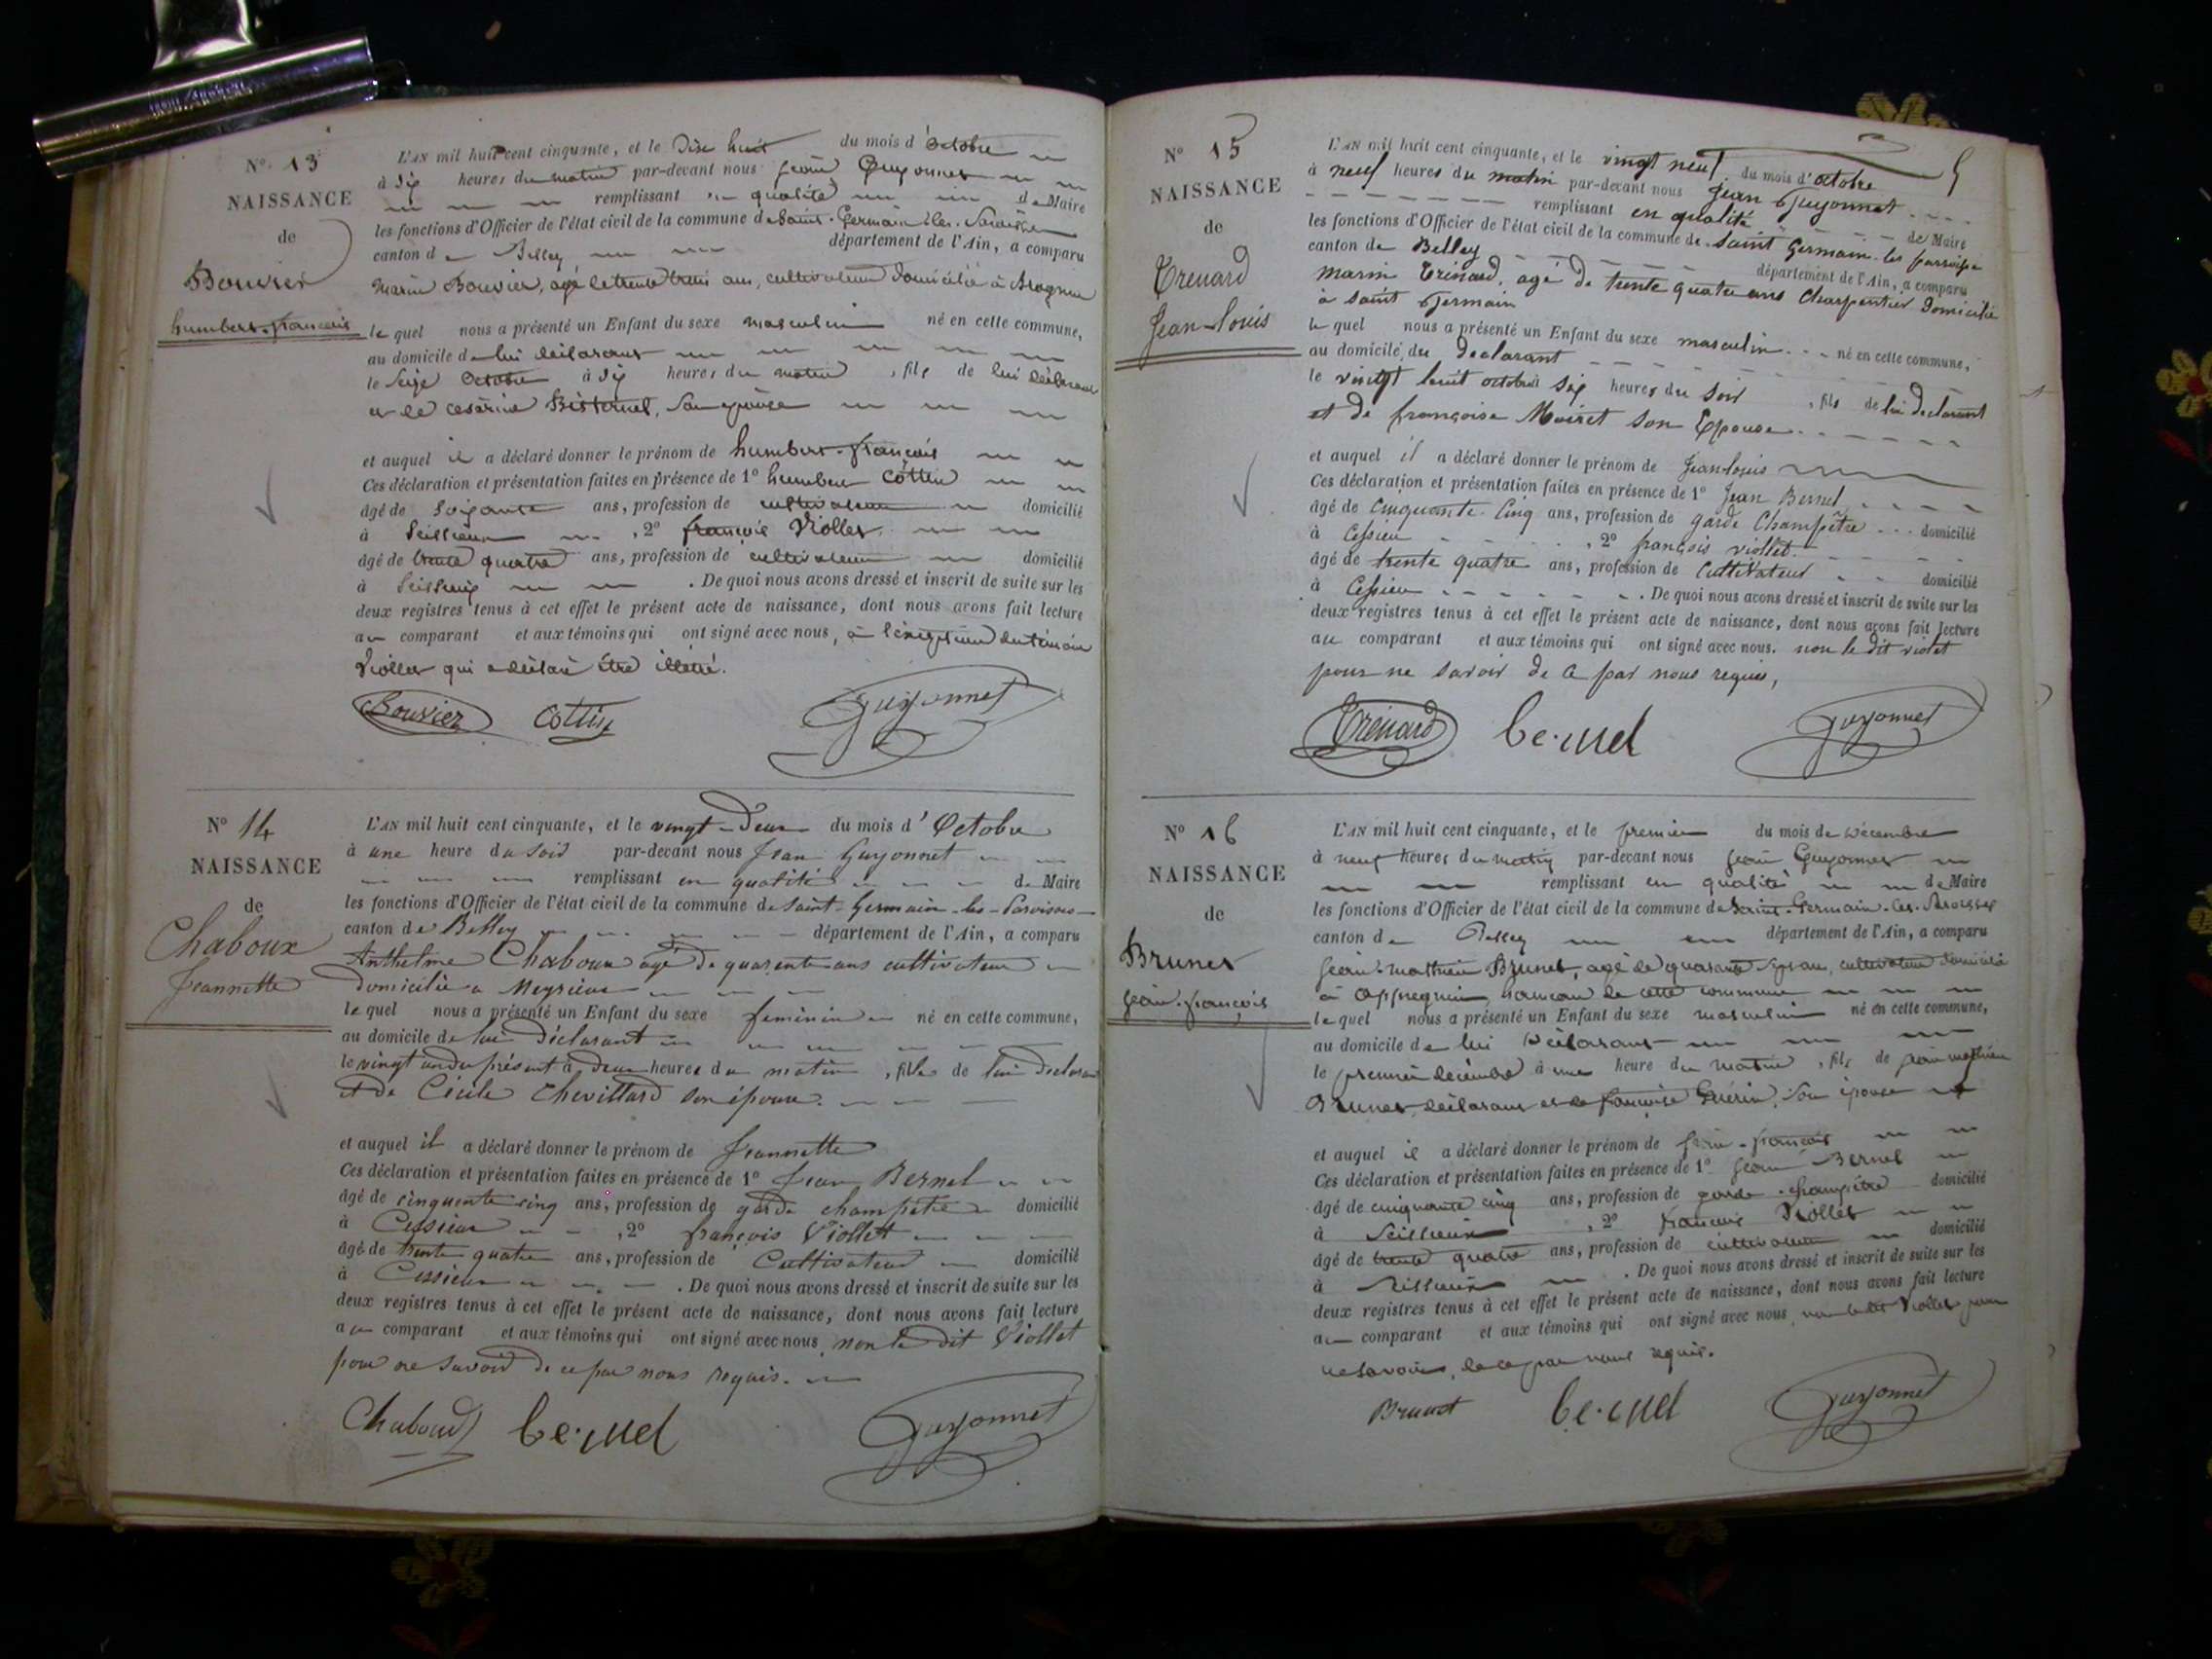 N° 13
NAISSANCE
de
Bouvier
humbert-françois
L'AN mil huit cent cinquante, et le Dix huit du mois d'Octobre
à dix heures du matin par-devant nous jean Guyonnet
remplissant en qualité de Maire
les fonctions d'Officier de l'état civil de la commune de Saint-Germain-les-Paroisses
canton de Belley département de l'Ain, a comparu
Marin Bouvier, agé de trente trois ans, cultivateur domicilié à Brognin
lequel nous a présenté un Enfant du sexe masculin né en cette commune,
au domicile de lui déclarant
le seize Octobre à dix heures du matin, fils de lui déclarant
et de cesarine Bisternel, son épouse
et auquel il a déclaré donner le prénom de humbert-françois
Ces déclaration et présentation faites en présence de 1° humbert Cottin
âgé de soixante ans, profession de cultivateur domicilié
à Seissieux, 2° françois Viollet
âgé de trente quatre ans, profession de cultivateur domicilié
à . De quoi nous avons dressé et inscrit de suite sur les
deux registres tenus à cet effet le présent acte de naissance, dont nous avons fait lecture
au comparant et aux témoins qui ont signé avec nous, à l'exception du témoin
Viollet qui a déclaré être illétré.
Bouvier Cottin Guyonnet
N° 14
NAISSANCE
de
Chaboux
Jeannette
L'AN mil huit cent cinquante, et le vingt-Deux du mois d'Octobre
à une heure du soir par-devant nous Jean Guyonnet
remplissant en qualité de Maire
les fonctions d'Officier de l'état civil de la commune de Saint-Germain-les-Paroisses
canton de Belley département de l'Ain, a comparu
Anthelme Chaboux agé de quarente ans cultivateur
domicilié a Meyrieux
lequel nous a présenté un Enfant du sexe féminin né en cette commune,
au domicile de lui déclarant
le vingt un du présent à deux heures du matin, fille de lui declarant
et de Cécile Chevillard son épouse.
et auquel il a déclaré donner le prénom de Jeannette
Ces déclaration et présentation faites en présence de 1° Jean Bernel
âgé de cinquente cinq ans, profession de garde champêtre domicilié
à Cessieux, 2° françois Viollet
âgé de trente quatre ans, profession de Cultivateur domicilié
à Cessieux. De quoi nous avons dressé et inscrit de suite sur les
deux registres tenus à cet effet le présent acte de naissance, dont nous avons fait lecture
au comparant et aux témoins qui ont signé avec nous, non le dit Viollet
pour ne savoir de ce par nous requis.
Chaboud bernel Guyonnet
5
N° 15
NAISSANCE
de
Trenard
Jean-Louis
L'AN mil huit cent cinquante, et le vingt neuf du mois d'octobre
à neuf heures du matin par-devant nous Jean Guyonnet
remplissant en qualité de Maire
les fonctions d'Officier de l'état civil de la commune de saint Germain les parroisse
canton de Belley département de l'Ain, a comparu
marin Trénard, agé de trente quatre ans Charpentier Domicilié
à saint Germain
lequel nous a présenté un Enfant du sexe masculin né en cette commune,
au domicile du declarant
le vingt huit octobre à six heures du soir, fils de lui declarant
et de françoise Moiret son Epouse
et auquel il a déclaré donner le prénom de Jean-louis
Ces déclaration et présentation faites en présence de 1° Jean Bernel
âgé de cinquante-cinq ans, profession de garde Champêtre domicilié
à Cessieu, 2° françois viollet
âgé de trente quatre ans, profession de cultivateur domicilié
à Cessieu. De quoi nous avons dressé et inscrit de suite sur les
deux registres tenus à cet effet le présent acte de naissance, dont nous avons fait lecture
au comparant et aux témoins qui ont signé avec nous. non le dit violet
pour ne savoir de ce par nous requis,
Trénard bernel Guyonnet
N° 16
NAISSANCE
de
Brunet
jean-françois
L'AN mil huit cent cinquante, et le premier du mois de décembre
à neuf heures du matin par-devant nous jean Guyonnet
remplissant en qualité de Maire
les fonctions d'Officier de l'état civil de la commune de Saint-Germain-les-Paroisses
canton de Belley département de l'Ain, a comparu
jean-matthieu Brunet, agé de quarante sept ans, cultivateur domicilié
à Appregnin, hameau de cette commune
lequel nous a présenté un Enfant du sexe masculin né en cette commune,
au domicile de lui déclarant
le premier décembre à une heure du matin, fils de jean mathieu
Brunet, déclarant et de françoise Guérin, son épouse
et auquel il a déclaré donner le prénom de jean-françois
Ces déclaration et présentation faites en présence de 1° jean Bernel
âgé de cinquante cinq ans, profession de garde-champêtre domicilié
à Seissieux, 2° françois Viollet
âgé de trente quatre ans, profession de cultivateur domicilié
à Seissieux. De quoi nous avons dressé et inscrit de suite sur les
deux registres tenus à cet effet le présent acte de naissance, dont nous avons fait lecture
au comparant et aux témoins qui ont signé avec nous, non le dit Viollet pour
ne savoir, de ce par nous requis.
Brunet bernel Guyonnet